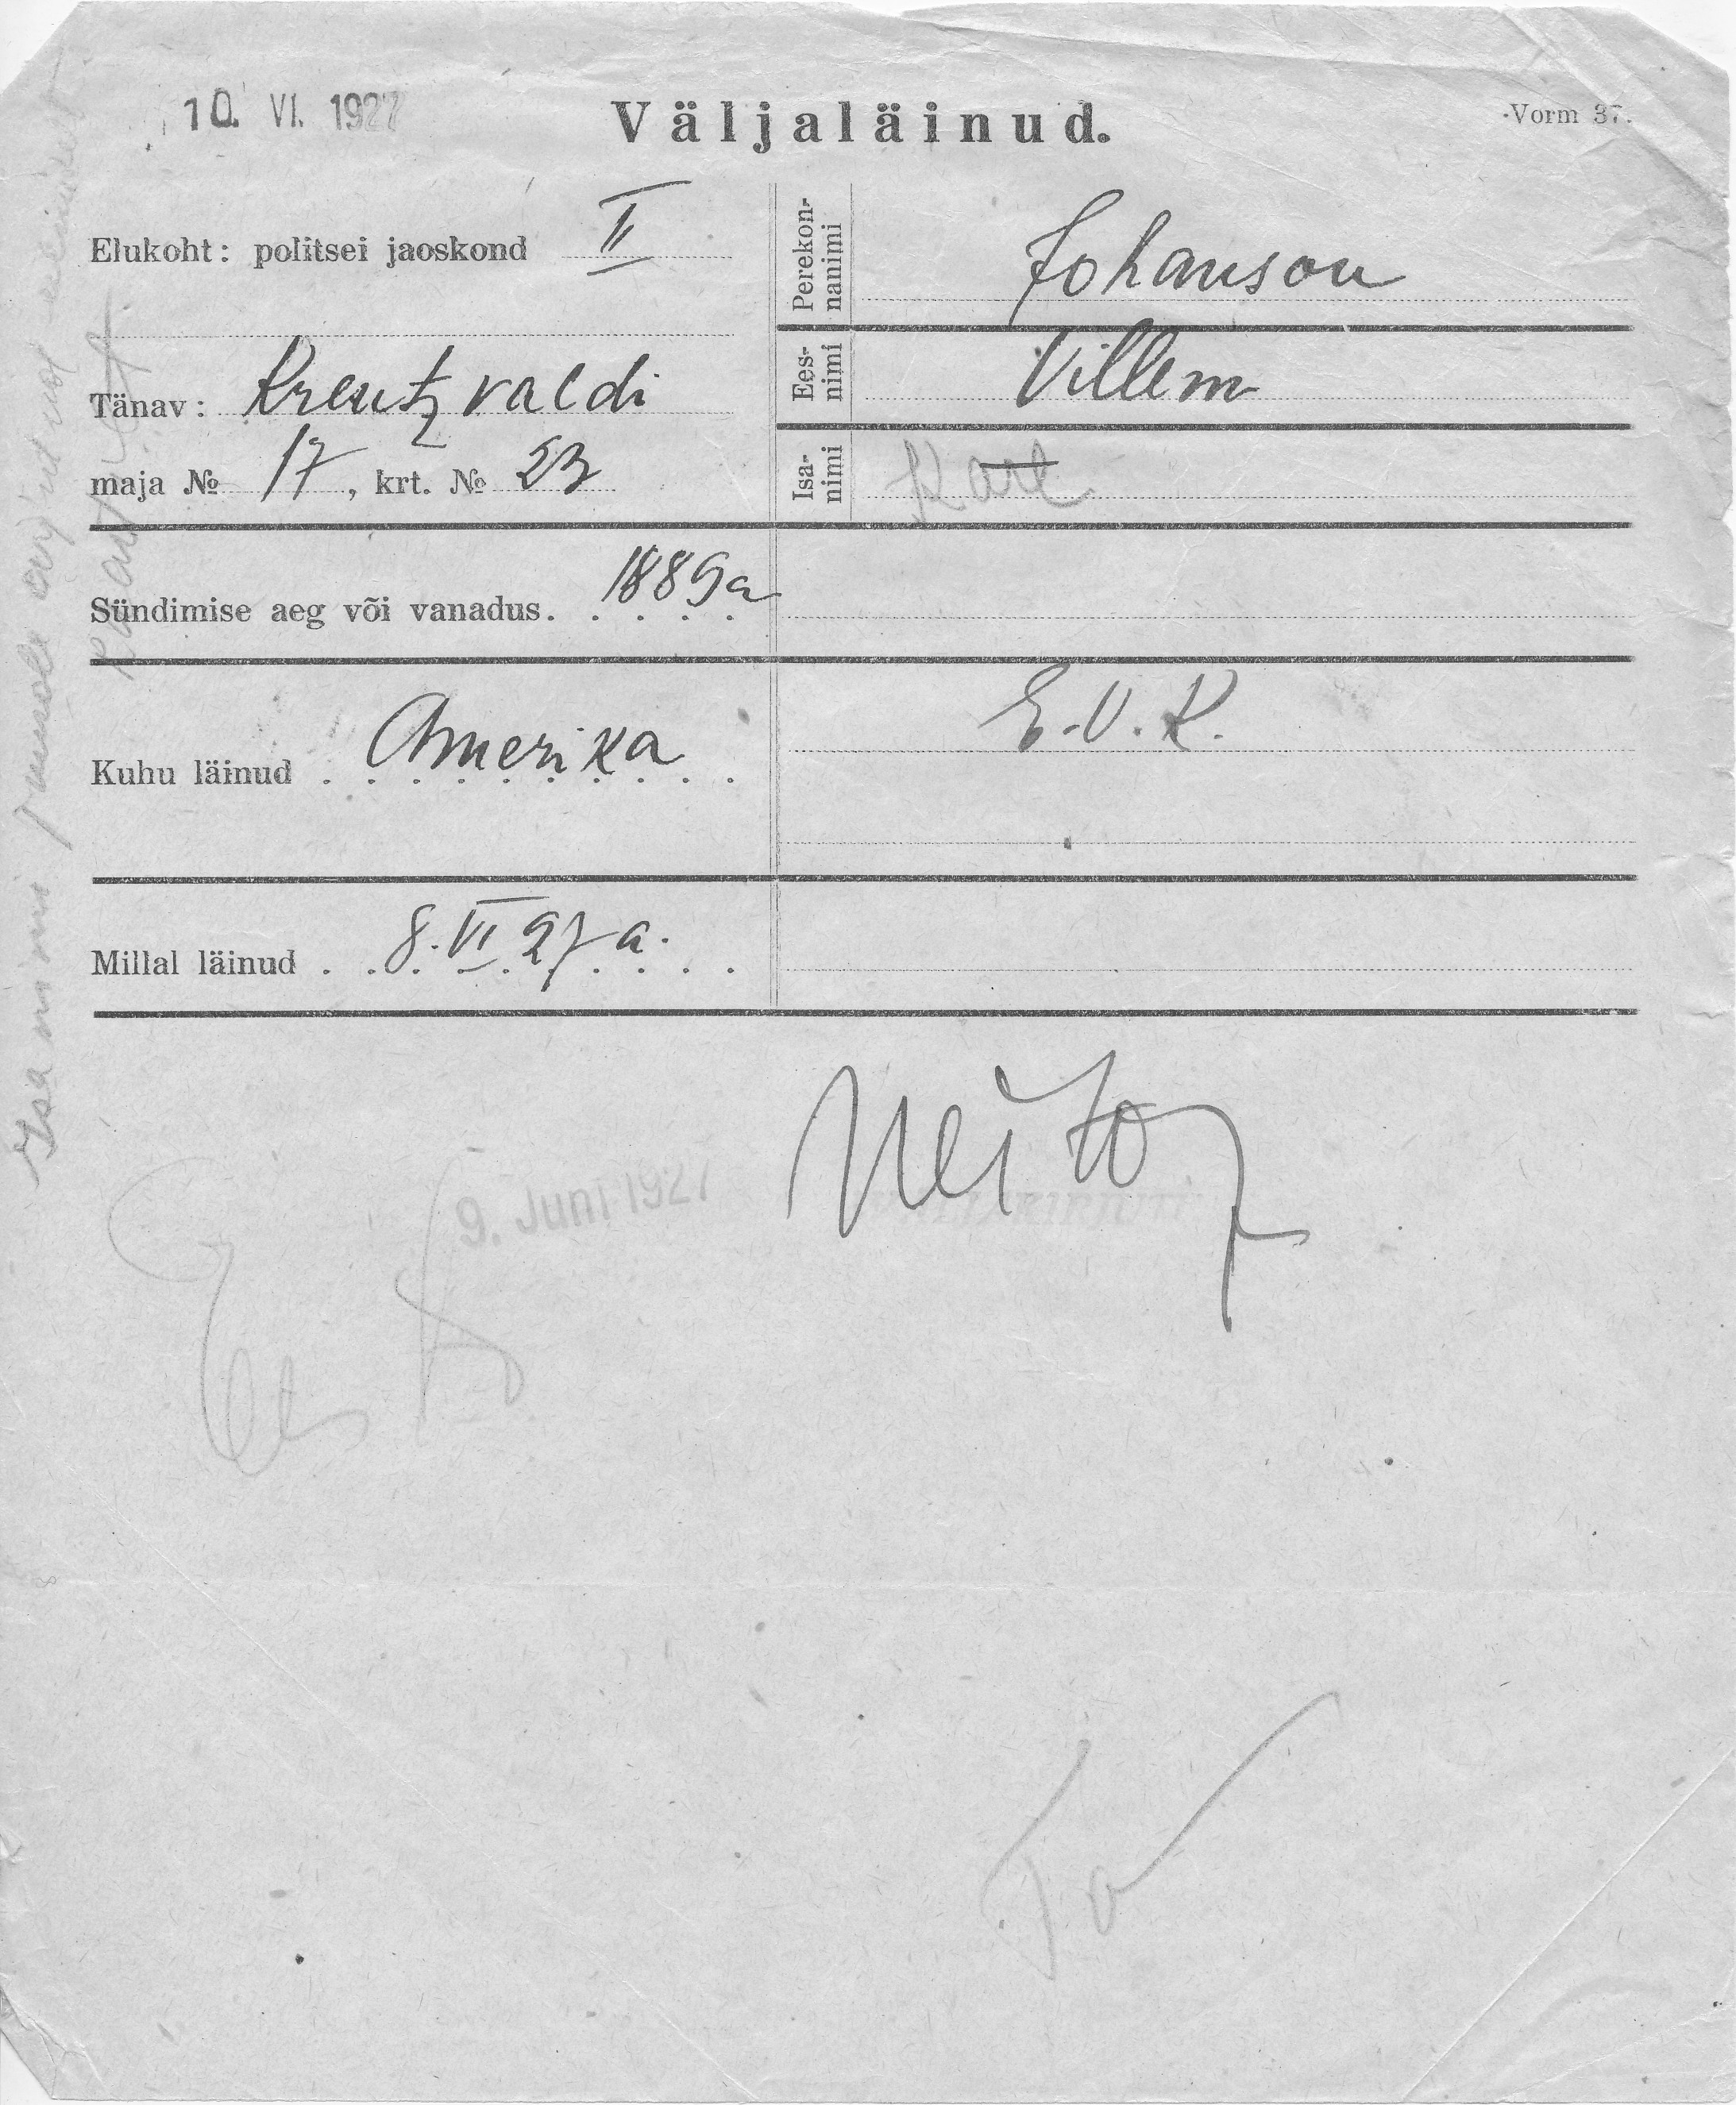 10. VI. 1927
Väljaläinud.
Vorm 37.
Elukoht: politsei jaoskond II
Perekonnanimi
Johanson
Tänav: Kreutzvaldi
Eesnimi
Villem
maja № 17, krt. № 23
Isanimi
Karl
Sündimise aeg või vanadus. 1889 a
Kuhu läinud Amerika
E.V.K.
Millal läinud 8. VI 27 a.
9. Juni 1927
Isa nimi